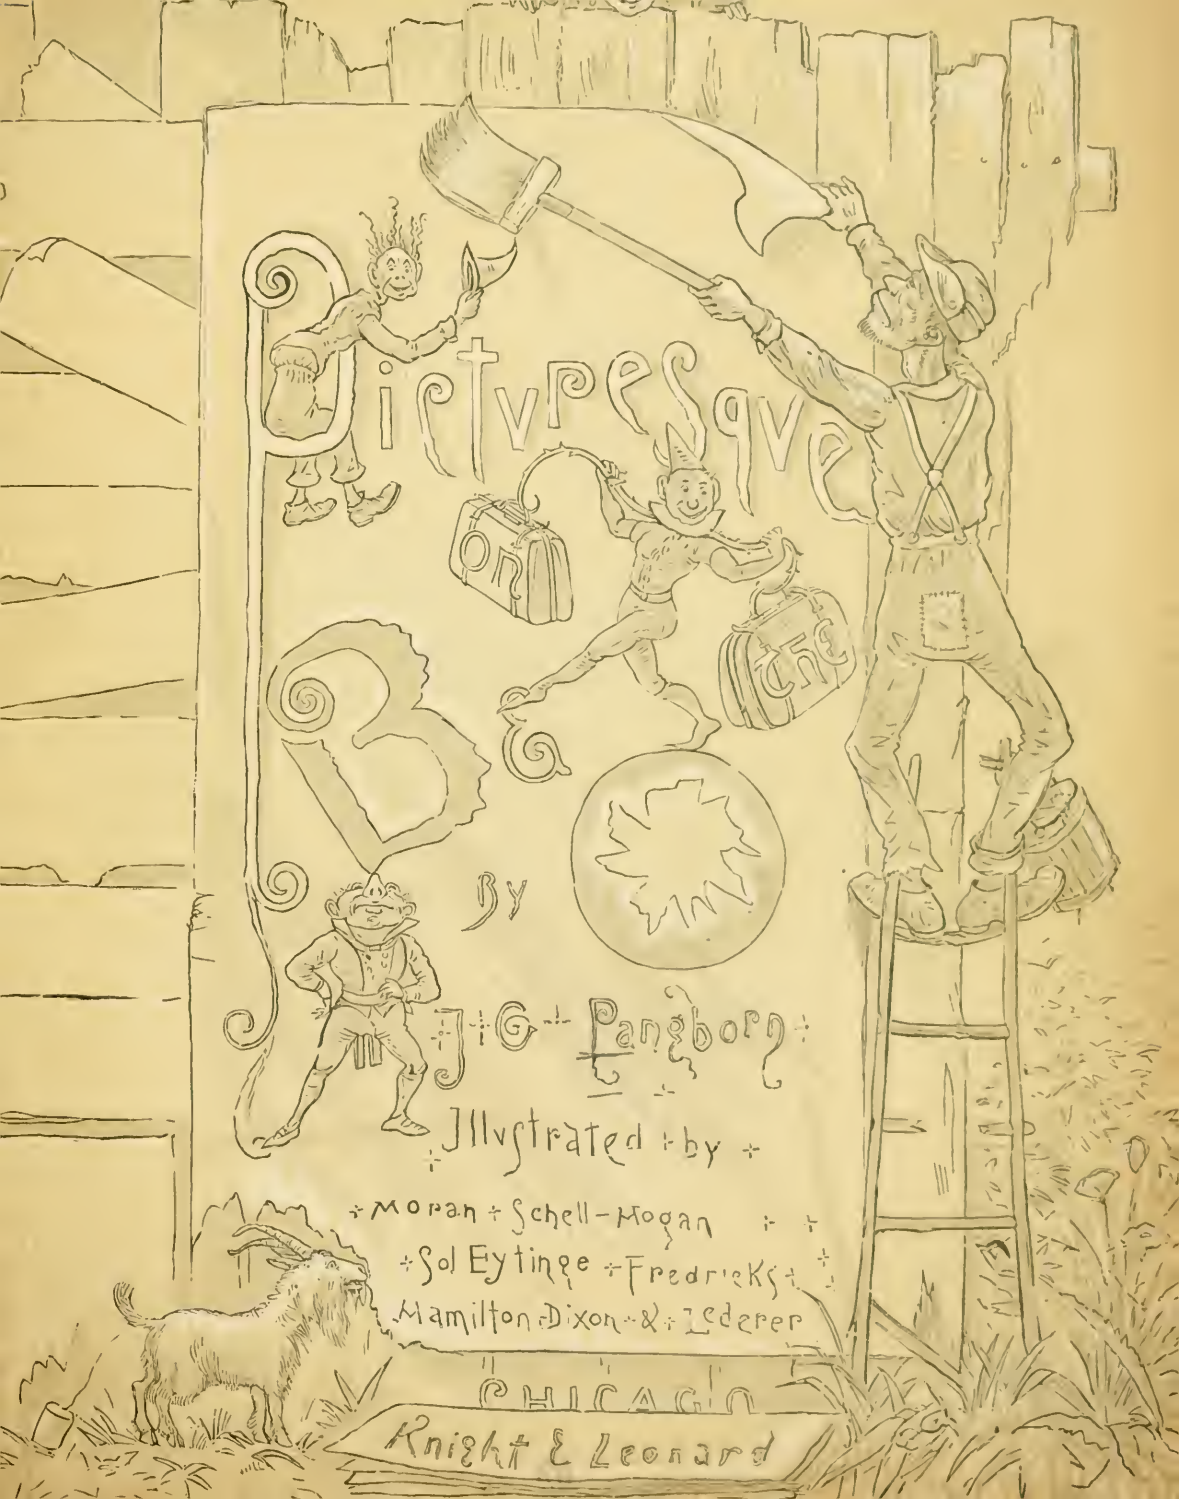 Pictvresqve
on the
B & O
By
J + G + Pangborn
Illvstrated by
Moran + Schell - Hogan
Sol Eytinge + Fredricks
Hamilton - Dixon - & - Lederer
CHICAGO
Knight & Leonard